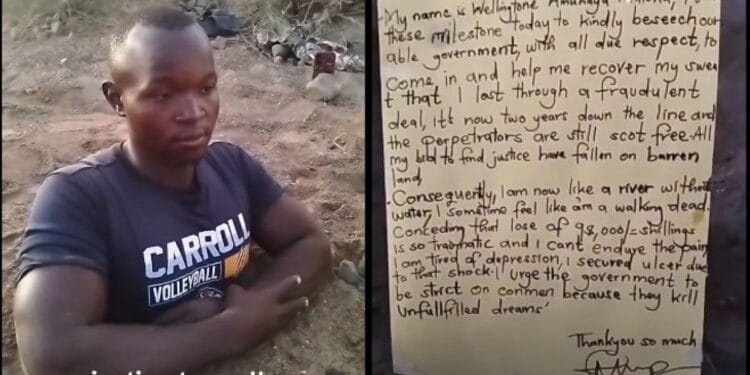 CARROLL
VOLLEYBALL
My name is Wellingtone
these milestone today to kindly beseech our
able government, with all due respect, to
Come in and help me recover my swea
t that I lost through a fraudulent
deal, It's now two years down the line and
the perpetrators are still scot free. All
my bid to find justice have fallen on barren
land,
Consequently, I am now like a river without
water, I sometime feel like am a walking dead.
Conceding that lose of 98,000/= shillings
is so traumatic and I cant endure the pain,
I am tired of depression, I secured ulcer due
to that shock. I urge the government to
be strict on conmen because they kill
Unfullfilled dreams'
Thankyou so much